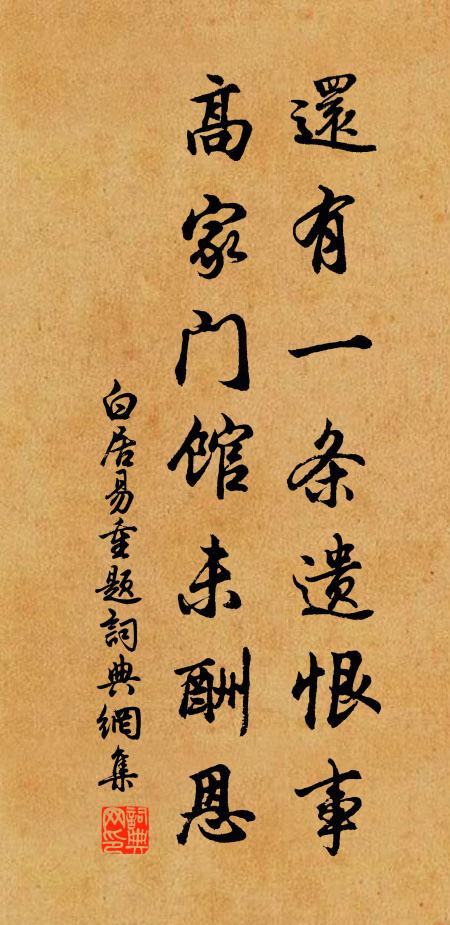 還有一条遗恨事
高家门馆未酬恩
白居易重题詞典網集
詞典网印